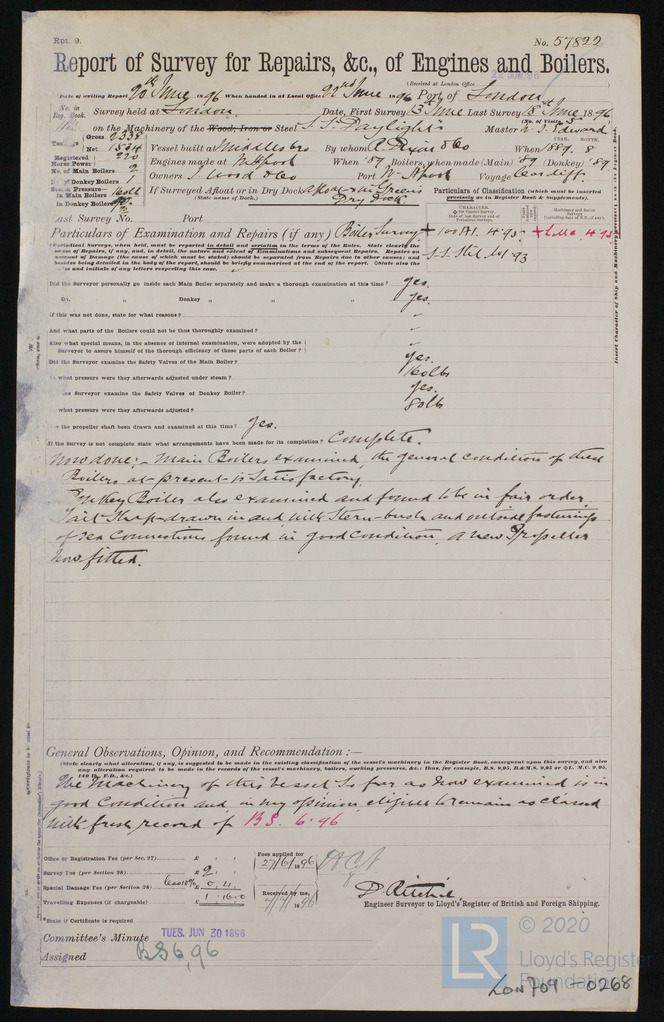 Rpt. 9.
No. 57822
Report of Survey for Repairs, &c., of Engines and Boilers.
22 JUN. 96
(Received at London Office
Date of writing Report 20th June 1896 When handed in at Local Office 22nd June 1896 Port of London
No. in Reg. Book.
Survey held at London Date, First Survey 5th June Last Survey 18th June 1896
(No. of Visits 3
on the Machinery of the Wood, Iron or Steel S.S. Daylight Master
Gross 2338
Net 1514
Vessel built at Middlesbro By whom R. Dixon & Co When 1889. 8
YEAR. MONTH.
Registered Horse Power 220
Engines made at When '89 Boilers, when made (Main) 89 (Donkey) '89
No. of Main Boilers 2
Owners J. Wood & Co Port Voyage Cardiff
No. of Donkey Boilers 1
Steam Pressure— in Main Boilers 160 lb
in Donkey Boilers
If Surveyed Afloat or in Dry Dock Afloat & in Greens Dry Dock
(State name of Dock.)
Particulars of Classification (which must be inserted precisely as in Register Book & Supplements).
Last Survey No. Port
CHARACTER.
Machinery and Boiler Surveys
Particulars of Examination and Repairs (if any) Boiler Survey
+ 100 A1. 4.95 + LMC 4.95
S.S. 93
(Periodical Surveys, when held, must be reported in detail and seriatim in the terms of the Rules. State clearly the
cause of Repairs, if any, and, in detail, the nature and extent of Examinations and subsequent Repairs. Repairs on
account of Damage (the cause of which must be stated) should be separated from Repairs due to other causes; and
besides being detailed in the body of the report, should be briefly summarised at the end of the report. State also the
and initials of any letters respecting this case.
Did the Surveyor personally go inside each Main Boiler separately and make a thorough examination at this time? yes.
Do. „ Donkey „ „ „ yes.
If this was not done, state for what reasons? "
And what parts of the Boilers could not be thus thoroughly examined? "
Also what special means, in the absence of internal examination, were adopted by the
Surveyor to assure himself of the thorough efficiency of those parts of each Boiler? "
Did the Surveyor examine the Safety Valves of the Main Boiler? yes.
what pressure were they afterwards adjusted under steam? 160 lbs
Surveyor examine the Safety Valves of Donkey Boiler? yes.
what pressure were they afterwards adjusted? 80 lbs
the propeller shaft been drawn and examined at this time? Yes.
If the Survey is not complete state what arrangements have been made for its completion? Complete.
Now done:- Main Boilers examined, the general condition of these
Boilers at present is Satisfactory.
Donkey Boiler also examined and found to be in fair order
Tail Shaft drawn in and with Stern-bush and outside fastenings
of sea connections found in good condition, a new Propeller
now fitted.
General Observations, Opinion, and Recommendation:—
(State clearly what alteration, if any, is suggested to be made in the existing classification of the vessel's machinery in the Register Book, consequent upon this survey, and also
any alteration required to be made in the records of the vessel's machinery, boilers, working pressures, &c.: thus, for example, B.S. 9,95, B.&M.S. 9,95 or L.M.C. 9,95,
140 lb., F.D., &c.)
The Machinery of this vessel So far as now examined is in
good Condition and in my opinion eligible to remain as classed
with fresh record of BS. 6.96
Office or Registration Fee (per Sec. 27) £
Survey Fee (per Section 28) £ 2
Special Damage Fee (per Section 28) less 10% £ 0.4
Travelling Expenses (if chargeable) £ 1.16.0
Fees applied for
27/6/1896
Received by me,
1896
D. Ritchie
Engineer Surveyor to Lloyd's Register of British and Foreign Shipping.
State if Certificate is required
Committee's Minute TUES. JUN 30 1896
Assigned BS 6,96
© 2020
LR
Lloyd's Register
Foundation
LON709-0268